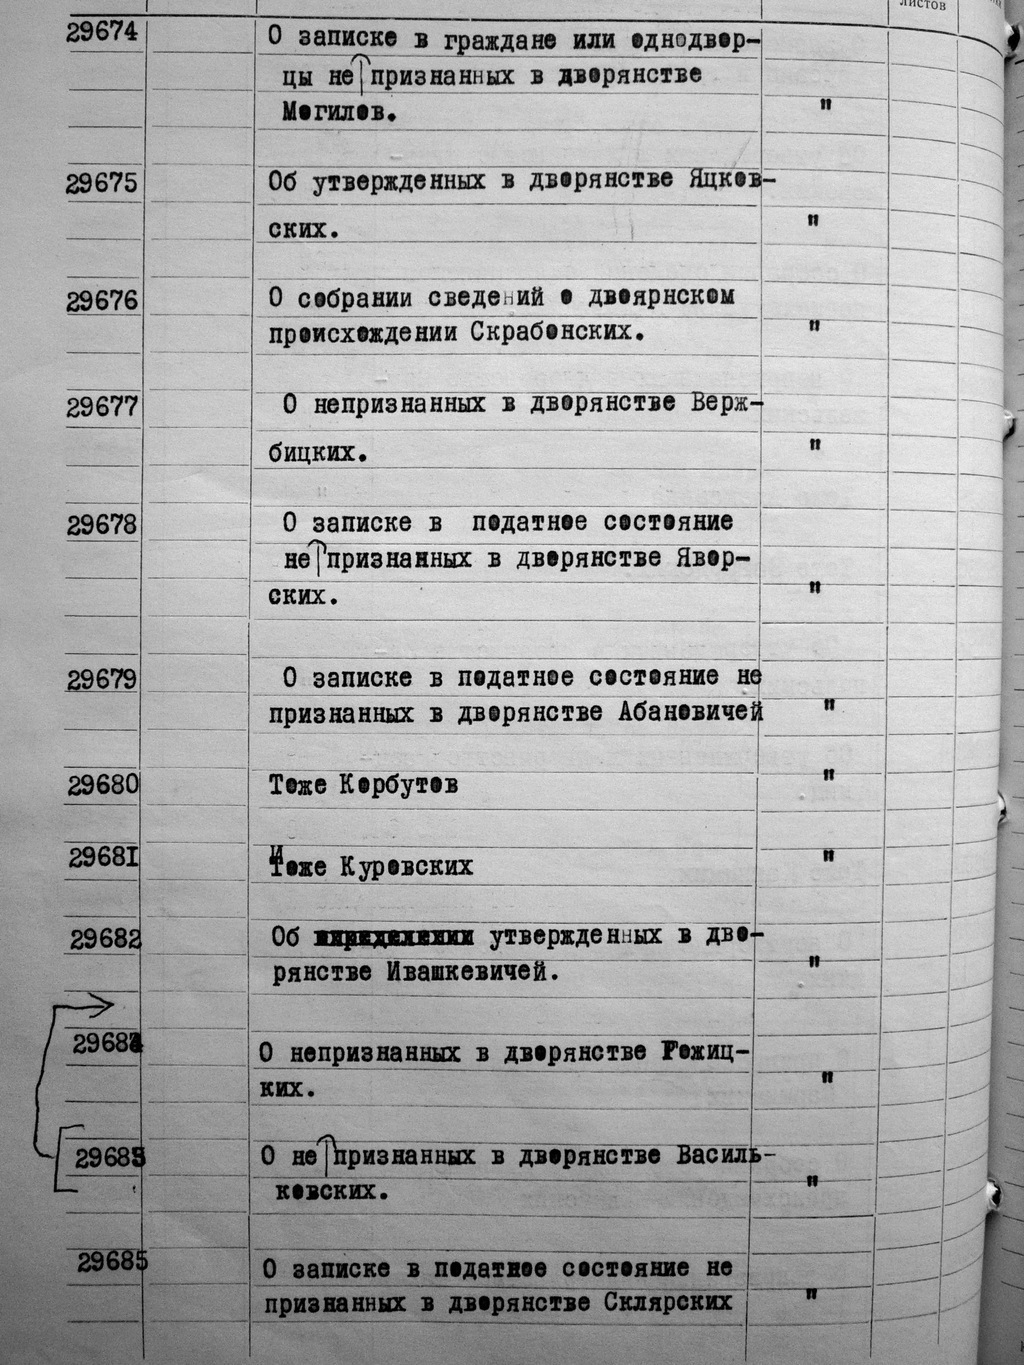 листов
29674 О записке в граждане или однодвор-
цы не признанных в дворянстве
Могилов. "
29675 Об утвержденных в дворянстве Яцков-
ских. "
29676 О собрании сведений о двоярнском
происхождении Скрабонских. "
29677 О непризнанных в дворянстве Верж-
бицких. "
29678 О записке в податное состояние
не признанных в дворянстве Явор-
ских. "
29679 О записке в податное состояние не
признанных в дворянстве Абановичей "
29680 Тоже Корбутов "
29681 Тоже Куровских "
29682 Об утвержденных в дво-
рянстве Ивашкевичей. "
29684 О непризнанных в дворянстве Гожиц-
ких. "
29683 О не признанных в дворянстве Василь-
ковских. "
29685 О записке в податное состояние не
признанных в дворянстве Склярских "